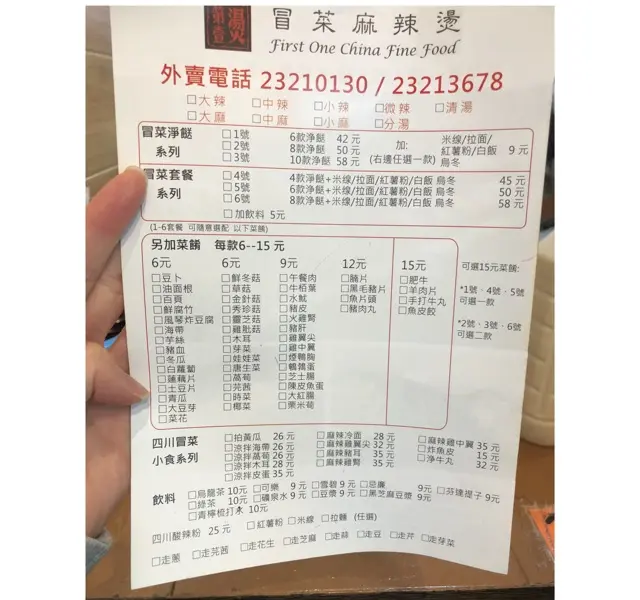 湯火
第壹
冒菜麻辣燙
First One China Fine Food
外賣電話 23210130 / 23213678
□大辣 □中辣 □小辣 □微辣 □清湯
□大麻 □中麻 □小麻 □分湯
冒菜淨餸 系列
□1號 6款淨餸 42元
□2號 8款淨餸 50元
□3號 10款淨餸 58元 (右邊任選一款)
加: 米線/拉面/紅薯粉/白飯 烏冬 9元
冒菜套餐 系列
□4號 4款淨餸+米線/拉面/紅薯粉/白飯 烏冬 45元
□5號 6款淨餸+米線/拉面/紅薯粉/白飯 烏冬 50元
□6號 8款淨餸+米線/拉面/紅薯粉/白飯 烏冬 58元
□加飲料 5元
(1-6套餐 可隨意選配 以下菜餚)
另加菜餚 每款6--15元
6元
□豆卜
□油面根
□百頁
□鮮腐竹
□風琴炸豆腐
□海帶
□芋絲
□豬血
□冬瓜
□白蘿蔔
□蓮藕片
□土豆片
□青瓜
□大豆芽
□菜花
6元
□鮮冬菇
□草菇
□金針菇
□秀珍菇
□靈芝菇
□雞肶菇
□木耳
□芽菜
□娃娃菜
□唐生菜
□萵筍
□芫茜
□時菜
□椰菜
9元
□午餐肉
□牛栢葉
□水魷
□豬皮
□火雞腎
□豬肝
□雞翼尖
□雞中翼
□煙鴨胸
□鵪鶉蛋
□芝士腸
□陳皮魚蛋
□大紅腸
□粟米筍
12元
□腩片
□黑毛豬片
□魚片頭
□豬肉丸
15元
□肥牛
□羊肉片
□手打牛丸
□魚皮餃
可選15元菜餚:
*1號、4號、5號
可選一款
*2號、3號、6號
可選二款
四川冒菜 小食系列
□拍黃瓜 26元
□涼拌海帶 26元
□涼拌萵筍 26元
□涼拌木耳 28元
□涼拌皮蛋 35元
□麻辣冷面 28元
□麻辣雞翼尖 32元
□麻辣豬耳 35元
□麻辣雞腎 35元
□麻辣雞中翼 35元
□炸魚皮 15元
□淨牛丸 32元
飲料
□烏龍茶 10元 □可樂 9元 □雪碧 9元 □忌廉 9元 □芬達提子 9元
□綠茶 10元 □礦泉水 9元 □豆漿 9元 □黑芝麻豆漿 9元
□青檸梳打水 10元
四川酸辣粉 25元 □紅薯粉 □米線 □拉麵 (任選)
□走蔥 □走芫茜 □走花生 □走芝麻 □走蒜 □走豆 □走芹 □走芽菜